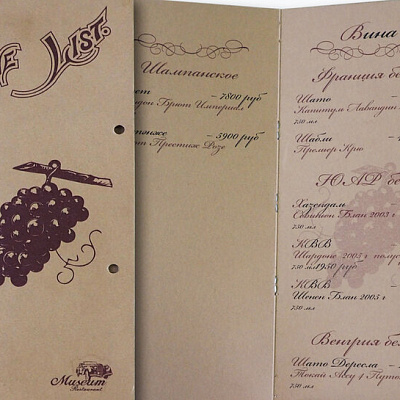 List.
Museum
Restaurant
Шампанское
– 7800 руб
Брют Империал
– 5900 руб
Престиж Розе
Вина
Франция бе
Шато –
Капитул Лавандин
Шабли –
Премьер Крю
ЮАР бе
Хазендал –
Совиньон Блан 2003 г
750 мл
КВВ –
Шардоне 2005 г полус
750 мл 1950 руб
КВВ –
Шенен Блан 2005 г
750 мл
Венгрия бел
Шато Дересла –
Токай Асу 4 Путо
750 мл